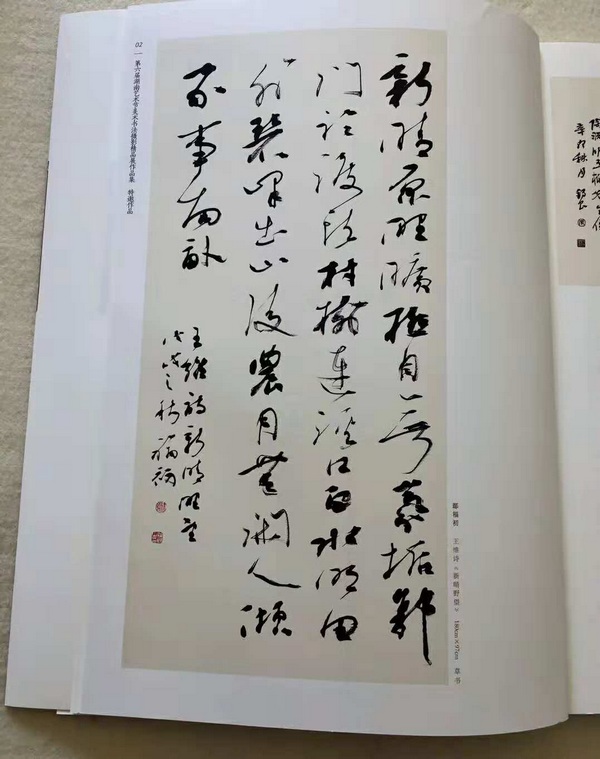 新晴原野曠極目無氛垢郭
门临渡头村樹連溪口白水明田
外碧峰出山後農月無閑人傾
家事南畝
王維詩新晴野望
戊戌之秋福初
02 — 第六届湖南艺术节美术书法摄影精品展作品集 特邀作品
鄢福初 王维诗《新晴野望》 180cm×97cm 草书